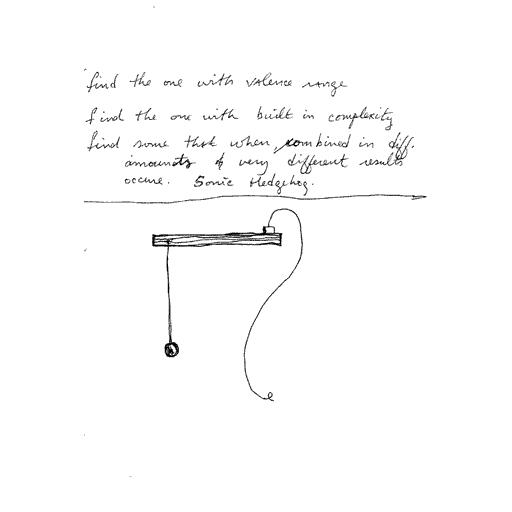 find the one with valence range
find the one with built in complexity
find some that when combined in diff.
amounts of very different results
occure. Sonic Hedgehog.